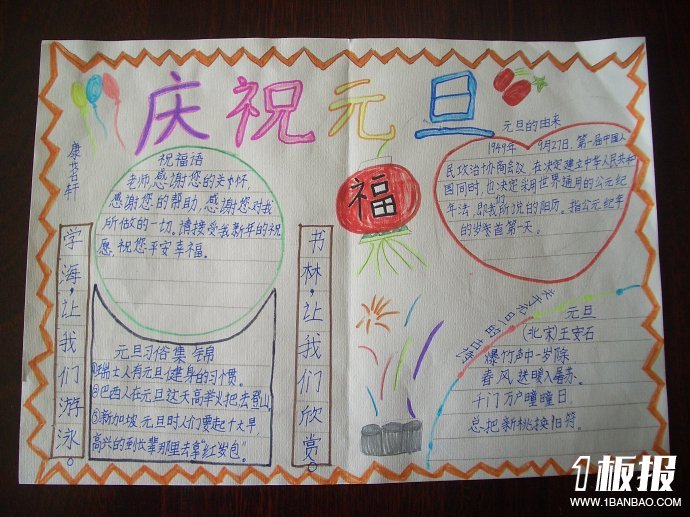 庆祝元旦
康茗轩
祝福语
老师,感谢您的关怀,
感谢您的帮助,感谢您对我
所做的一切。请接受我新年的祝
愿,祝您平安幸福。
学海,让我们游泳。
元旦习俗集锦
①瑞士人有元旦健身的习惯。
②巴西人在元旦这天高举火把去登山
③新加坡元旦时人们要起个大早,
高兴的到长辈那里去拿“红岁包”。
书林,让我们欣赏。
福
元旦的由来
1949年9月27日,第一届中国人
民政治协商会议,在决定建立中华人民共和
国同时,也决定采用世界通用的公元纪
年法,即我们所说的阳历。指公元纪年
的岁首第一天。
关于元旦的古诗
元旦
(北宋)王安石
爆竹声中一岁除
春风送暖入屠苏。
千门万户曈曈日,
总把新桃换旧符。
1板报
WWW.1BANBAO.COM